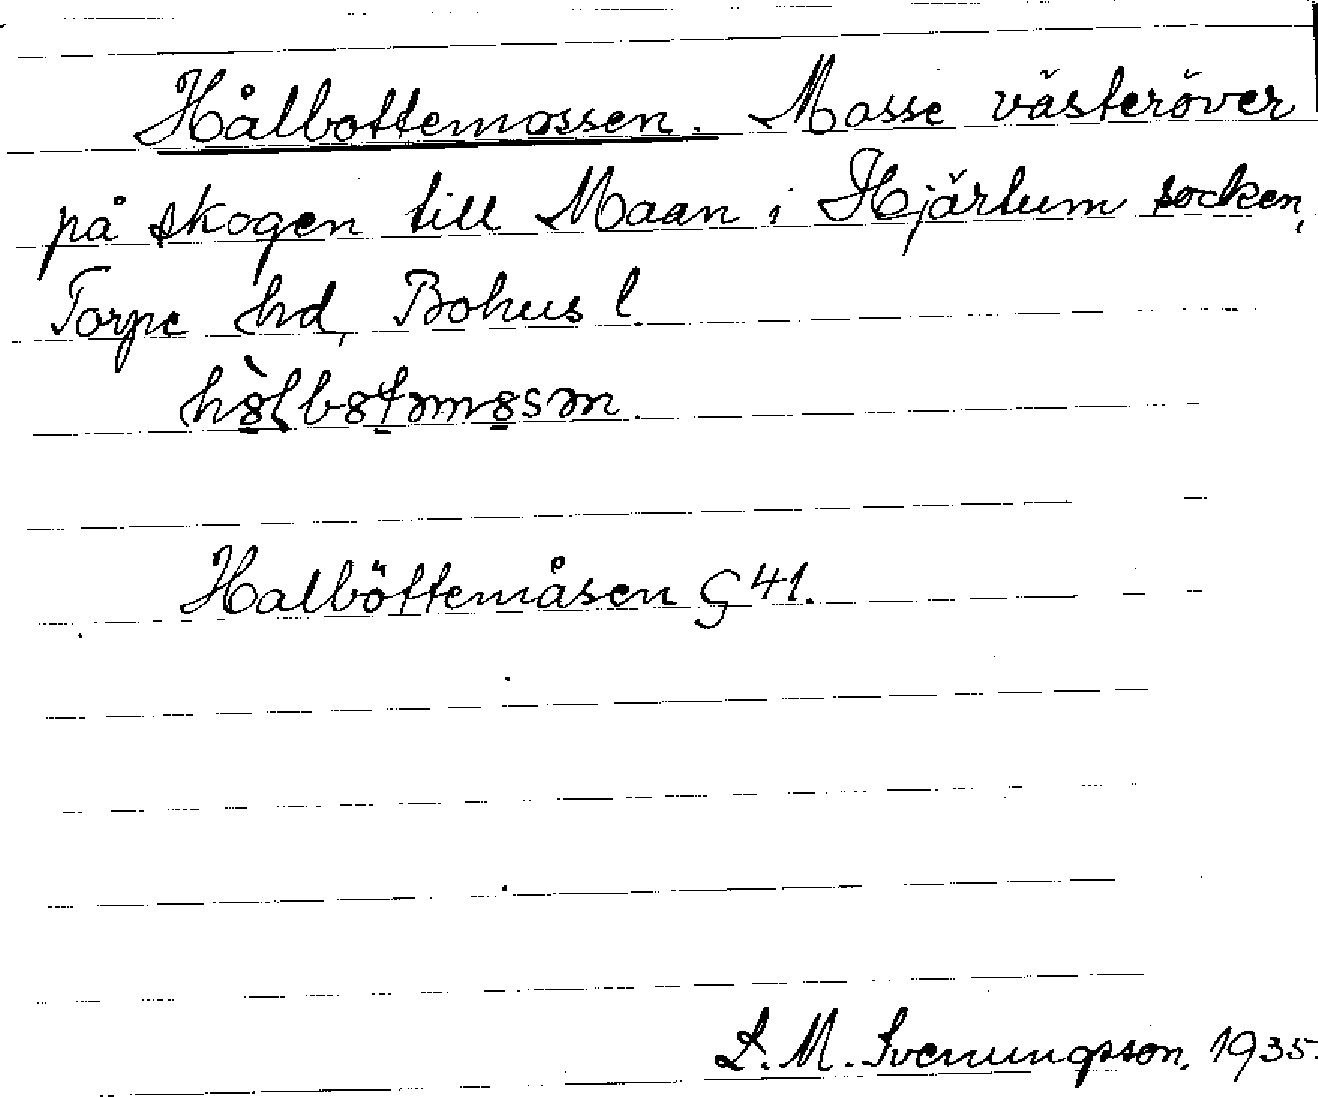 Hålbottemossen. Mosse västeröver
på skogen till Maan i Hjärtum socken,
Torpe hd, Bohus l.
Halböttemåsen G 41.
S. M. Svenungsson, 1935.